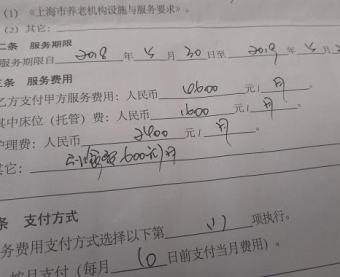 (1) 《上海市养老机构设施与服务要求》。
(2) 其它：
二条 服务期限
服务期限自 2018 年 5 月 30 日至 2019 年 5 月
三条 服务费用
乙方支付甲方服务费用：人民币 4600 元/月。
其中床位（托管）费：人民币 1600 元/月。
护理费：人民币 2400 元/月。
其它： 600元/月
条 支付方式
务费用支付方式选择以下第 (1) 项执行。
按月支付（每月 10 日前支付当月费用）。